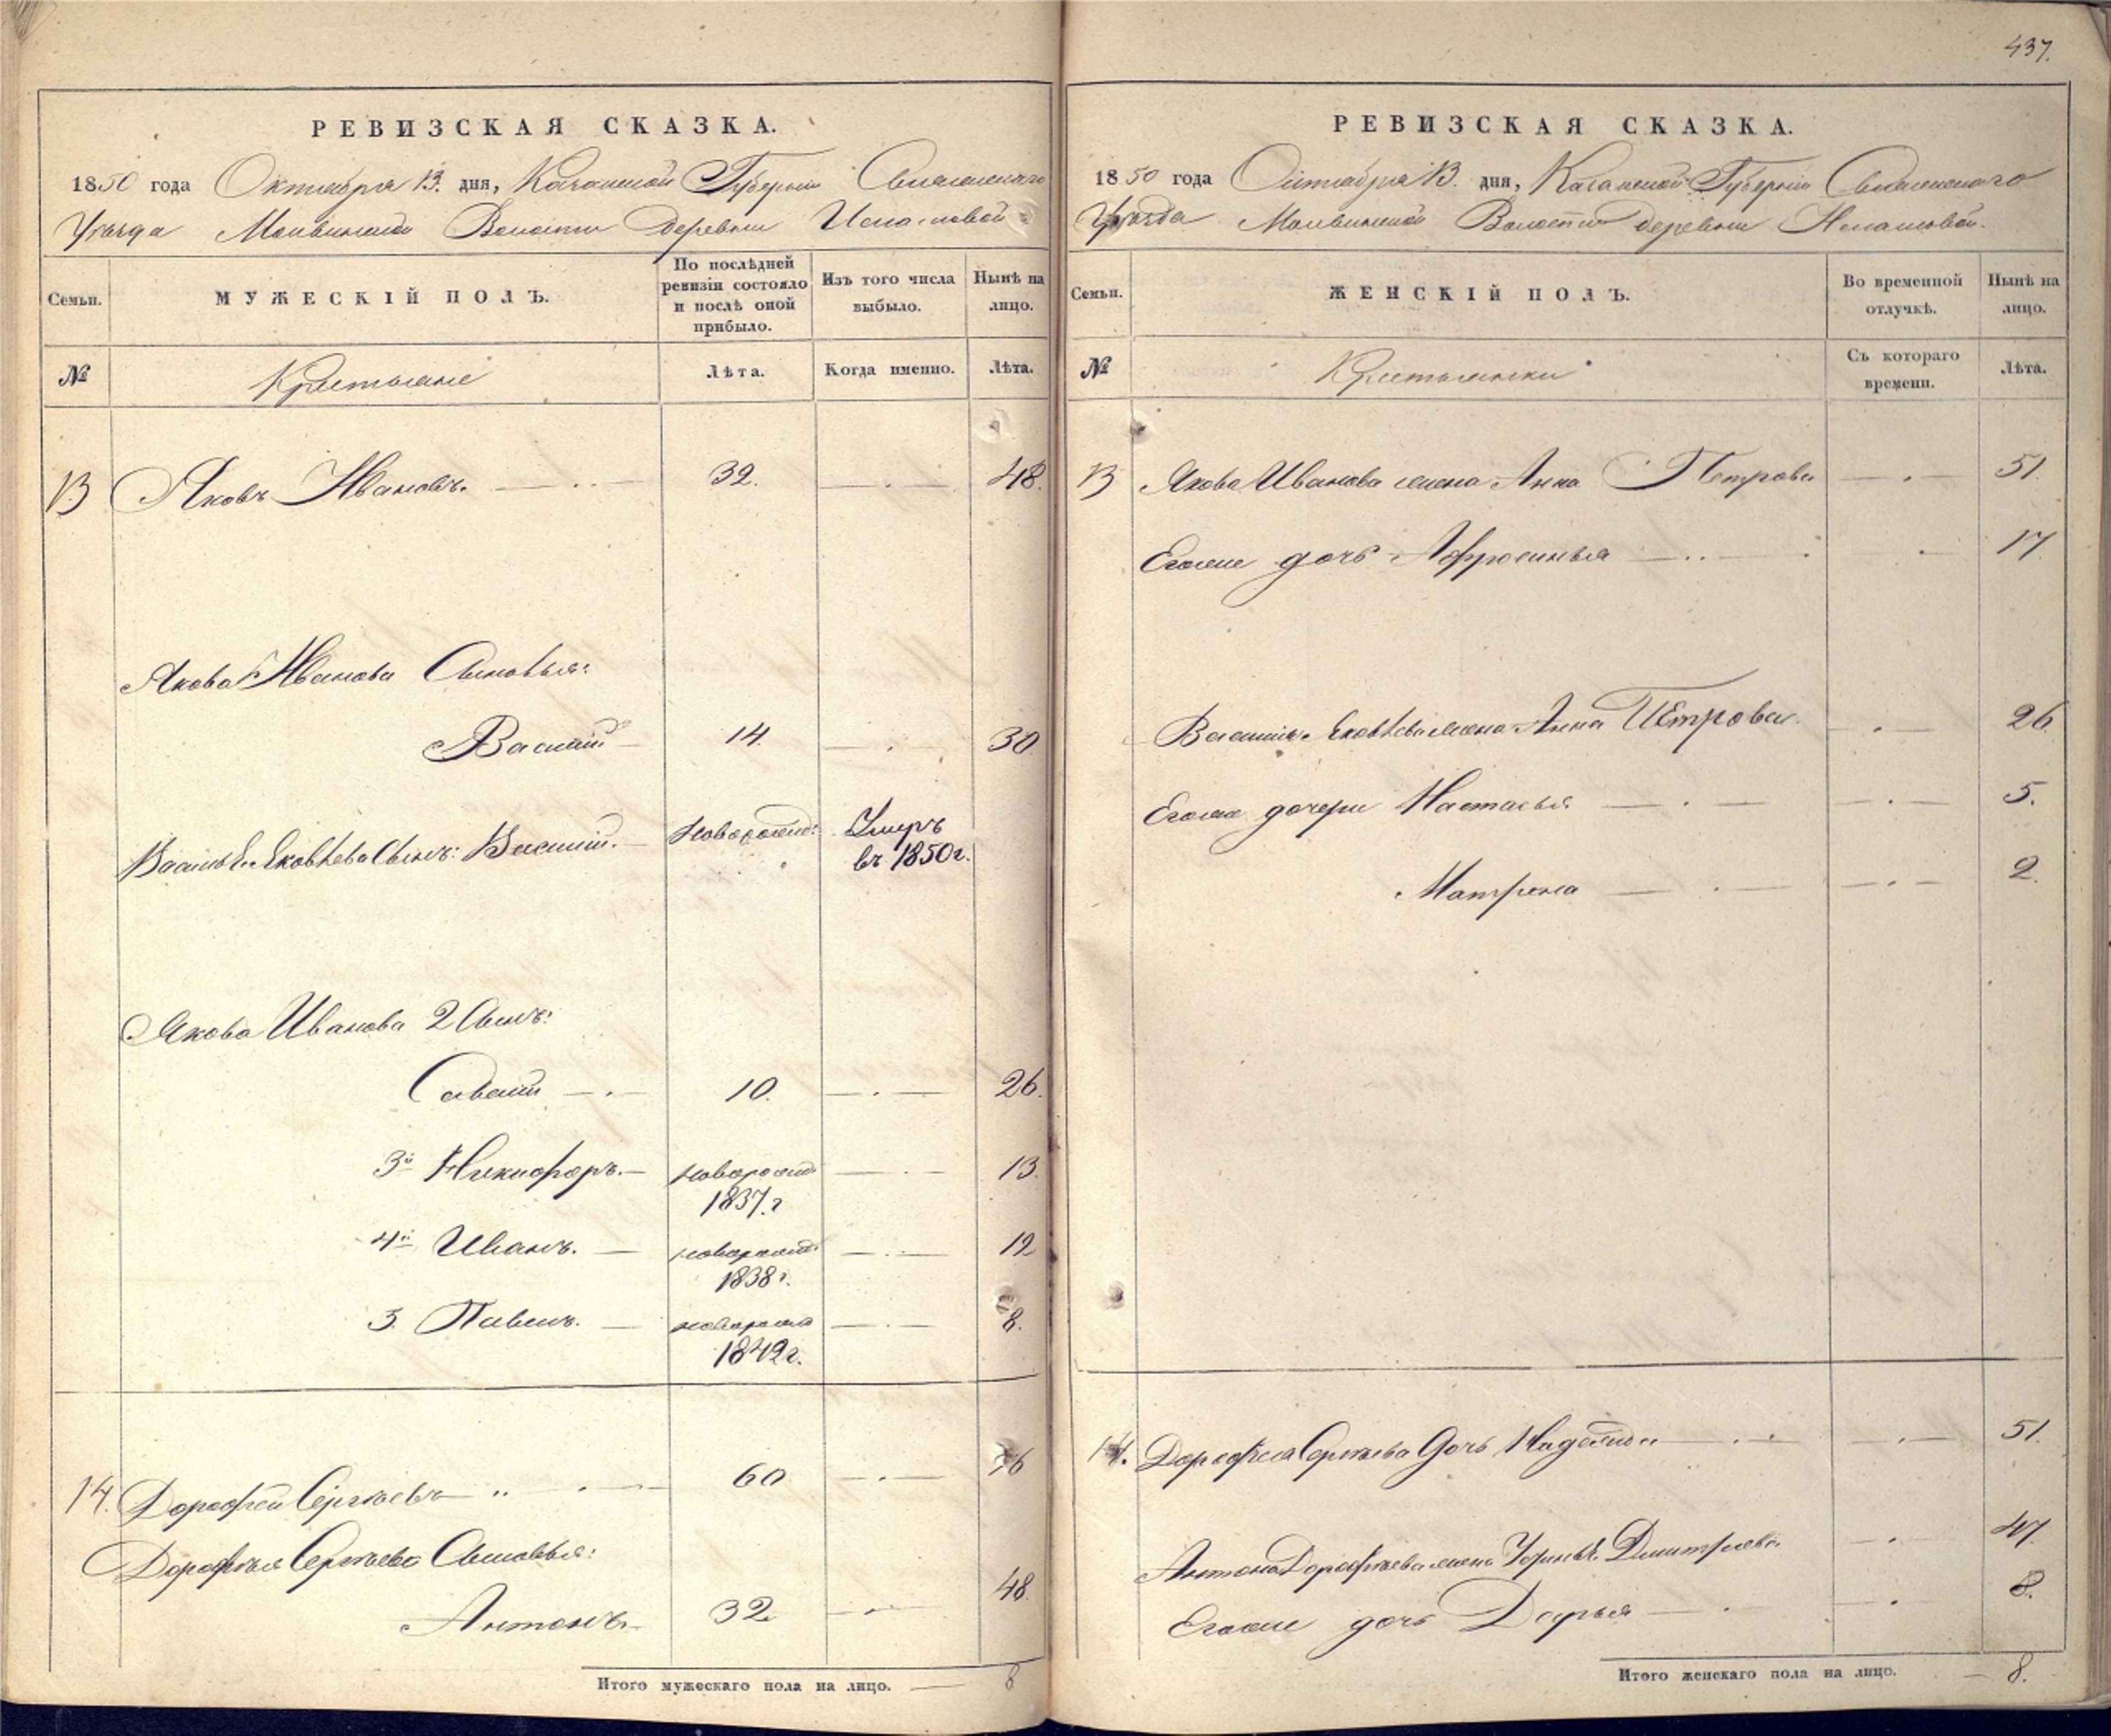 437.
РЕВИЗСКАЯ СКАЗКА.
1850 года Октября 13. дня, Казанской Губернии
Уѣзда Волости Деревни
Семьи.
МУЖЕСКІЙ ПОЛЪ.
По послѣдней ревизіи состояло и послѣ оной прибыло.
Изъ того числа выбыло.
Нынѣ на лицо.
№
Крестьяне
Лѣта.
Когда именно.
Лѣта.
13 Яковъ Ивановъ. 32. 48.
Якова Иванова Сыновья:
Василій 14. 30
Василья Яковлева Сынъ: Василій. Новорожд: Умеръ
въ 1850 г.
Якова Иванова 2 Сынъ:
Савелій 10. 26.
3й Никифоръ. новорожд 13.
1837. г
4й Иванъ. новорожд: 12
1838 г.
Павелъ. новорожд 8.
1842 г.
14. Дорофей Сергѣевъ 60 76
Дорофѣя Сергѣева Сыновья:
Антонъ. 32. 48.
Итого мужескаго пола на лицо. 8
РЕВИЗСКАЯ СКАЗКА.
1850 года Октября 13. дня, Казанской Губерніи
Уѣзда Волости Деревни
Семьи.
ЖЕНСКІЙ ПОЛЪ.
Во временной отлучкѣ.
Нынѣ на лицо.
№
Крестьянки
Съ котораго времени.
Лѣта.
13 Якова Иванова жена Анна Петрова 51.
Егоже дочь Афросинья 17.
Василья Яковлева жена Анна Петрова. 26.
Егоже дочери Настасья 5.
Матрена 2.
14. Дорофея Сергѣева дочь 51.
Антона Дорофѣева жена Дмитріева. 47.
Егоже дочь Дарья 8.
Итого женскаго пола на лицо. 8.